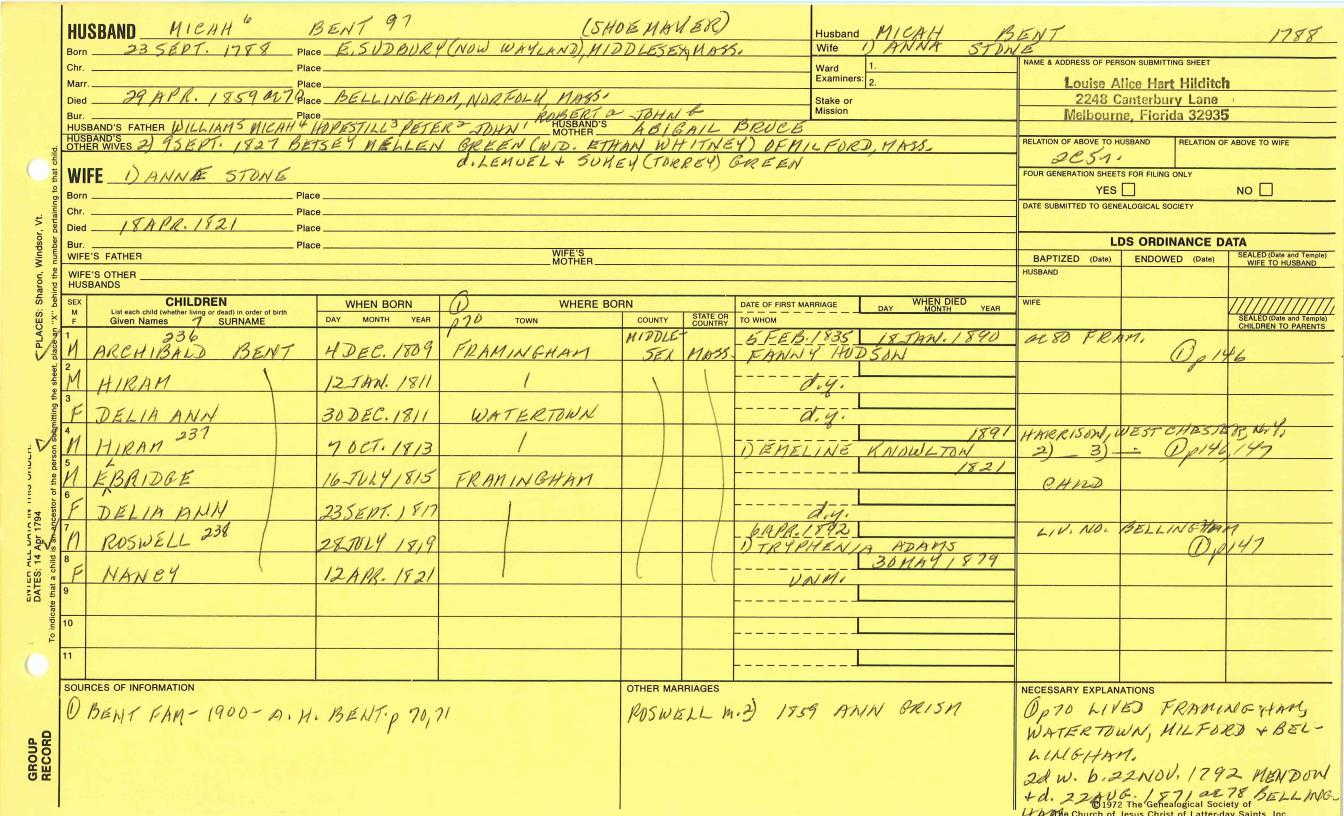 HUSBAND MICAH 6 BENT 97 (SHOEMAKER)
Born 23 SEPT. 1788 Place E. SUDBURY (NOW WAYLAND), MIDDLESEX, MASS.
Chr. Place
Marr. Place
Died 29 APR. 1859 ae 70 Place BELLINGHAM, NORFOLK, MASS.
Bur. Place ROBERT a JOHN b
HUSBAND'S FATHER WILLIAM 5 MICAH 4 HOPESTILL 3 PETER 2 JOHN 1 HUSBAND'S MOTHER ABIGAIL BRUCE
HUSBAND'S OTHER WIVES 2) 9 SEPT. 1827 BETSEY MELLEN GREEN (WID. ETHAN WHITNEY) OF MILFORD, MASS.
d. LEMUEL + SUKEY (TORREY) GREEN
WIFE 1) ANNA STONE
Born Place
Chr. Place
Died 18 APR. 1821 Place
Bur. Place
WIFE'S FATHER WIFE'S MOTHER
WIFE'S OTHER HUSBANDS
Husband MICAH BENT 1788
Wife 1) ANNA STONE
Ward Examiners: 1.
2.
Stake or Mission
NAME & ADDRESS OF PERSON SUBMITTING SHEET
Louise Alice Hart Hilditch
2248 Canterbury Lane
Melbourne, Florida 32935
RELATION OF ABOVE TO HUSBAND RELATION OF ABOVE TO WIFE
2C5r.
FOUR GENERATION SHEETS FOR FILING ONLY
YES NO
DATE SUBMITTED TO GENEALOGICAL SOCIETY
LDS ORDINANCE DATA
BAPTIZED (Date) ENDOWED (Date) SEALED (Date and Temple) WIFE TO HUSBAND
HUSBAND
WIFE
SEALED (Date and Temple) CHILDREN TO PARENTS
SEX M F
CHILDREN
List each child (whether living or dead) in order of birth
Given Names 7 SURNAME
WHEN BORN
DAY MONTH YEAR
① p70 WHERE BORN
TOWN COUNTY STATE OR COUNTRY
DATE OF FIRST MARRIAGE
TO WHOM
WHEN DIED
DAY MONTH YEAR
1 M ARCHIBALD 236 BENT 4 DEC. 1809 FRAMINGHAM MIDDLESEX MASS. 5 FEB. 1835 18 JAN. 1890 ae 80 FRAM.
FANNY HUDSON ① p146
2 M HIRAM 12 JAN. 1811 d.y.
3 F DELIA ANN 30 DEC. 1811 WATERTOWN d.y.
4 M HIRAM 237 7 OCT. 1813 1891 HARRISON, WESTCHESTER, N.Y.
1) EMELINE KNOWLTON 2) _ 3) — ① p146, 147
5 M ELBRIDGE 16 JULY 1815 FRAMINGHAM 1821 CHILD
6 F DELIA ANN 23 SEPT. 1817 d.y.
7 M ROSWELL 238 28 JULY 1819 6 APR. 1842 LIV. NO. BELLINGHAM
1) TRYPHENIA ADAMS ① p147
8 F NANCY 12 APR. 1821 30 MAY 1879
UNM.
9
10
11
SOURCES OF INFORMATION
① BENT FAM - 1900 - A. H. BENT. p 70, 71
OTHER MARRIAGES
ROSWELL m. 2) 1859 ANN
NECESSARY EXPLANATIONS
① p70 LIVED FRAMINGHAM,
WATERTOWN, MILFORD + BEL-
LINGHAM.
2d w. b. 22 NOV. 1792 MENDON
+ d. 22 AUG. 1871 ae 78 BELLING-
HAM
©1972 The Genealogical Society of
The Church of Jesus Christ of Latter-day Saints, Inc.
GROUP RECORD
ENTER ALL DATA IN THIS ORDER:
DATES: 14 Apr 1794
PLACES: Sharon, Windsor, Vt.
To indicate that a child is an ancestor of the person submitting the sheet, place an "X" behind the number pertaining to that child.